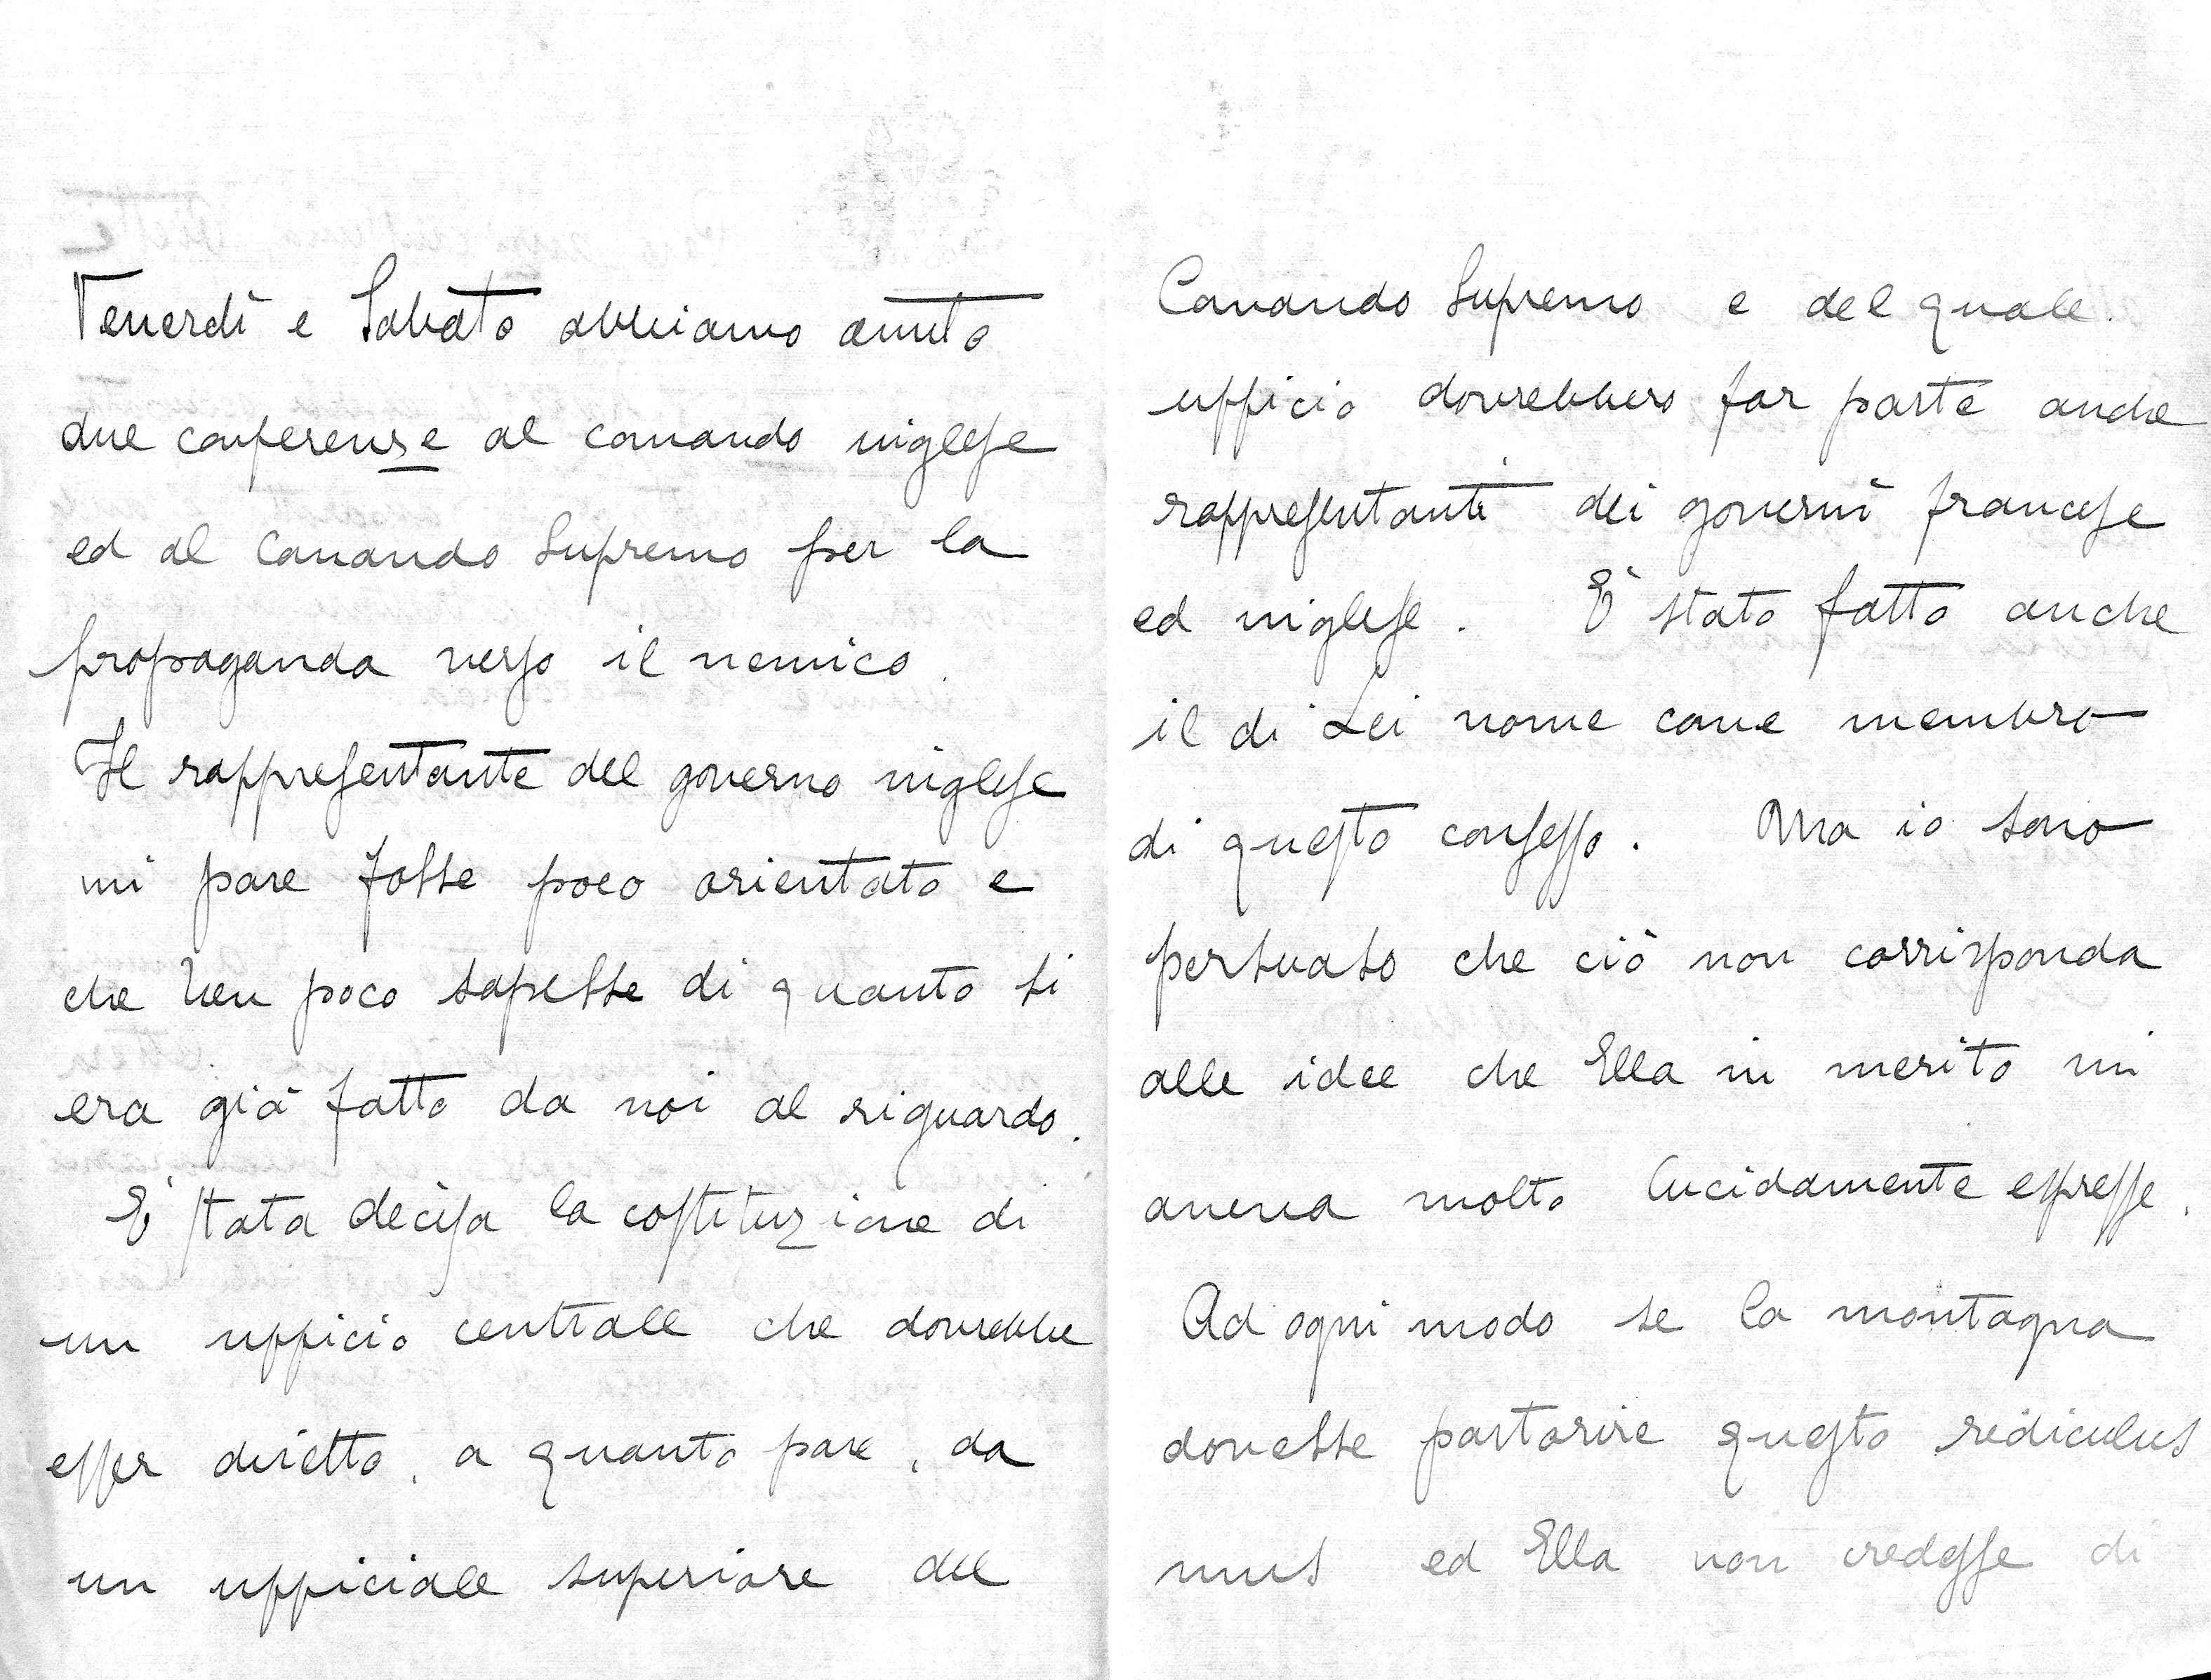 Venerdì e Sabato abbiamo avuto
due conferenze al comando inglese
ed al Comando Supremo per la
propaganda verso il nemico.
Il rappresentante del governo inglese
mi pare fosse poco orientato e
che ben poco sapesse di quanto si
era già fatto da noi al riguardo.
E' stata decisa la costituzione di
un ufficio centrale che dovrebbe
esser diretto, a quanto pare, da
un ufficiale superiore del
Comando Supremo e del quale
ufficio dovrebbero far parte anche
rappresentanti dei governi francese
ed inglese. E' stato fatto anche
il di Lei nome come membro
di questo consesso. Ma io sono
persuaso che ciò non corrisponda
alle idee che Ella in merito mi
aveva molto lucidamente espresse.
Ad ogni modo se la montagna
dovesse partorire questo ridiculus
mus ed Ella non credesse di